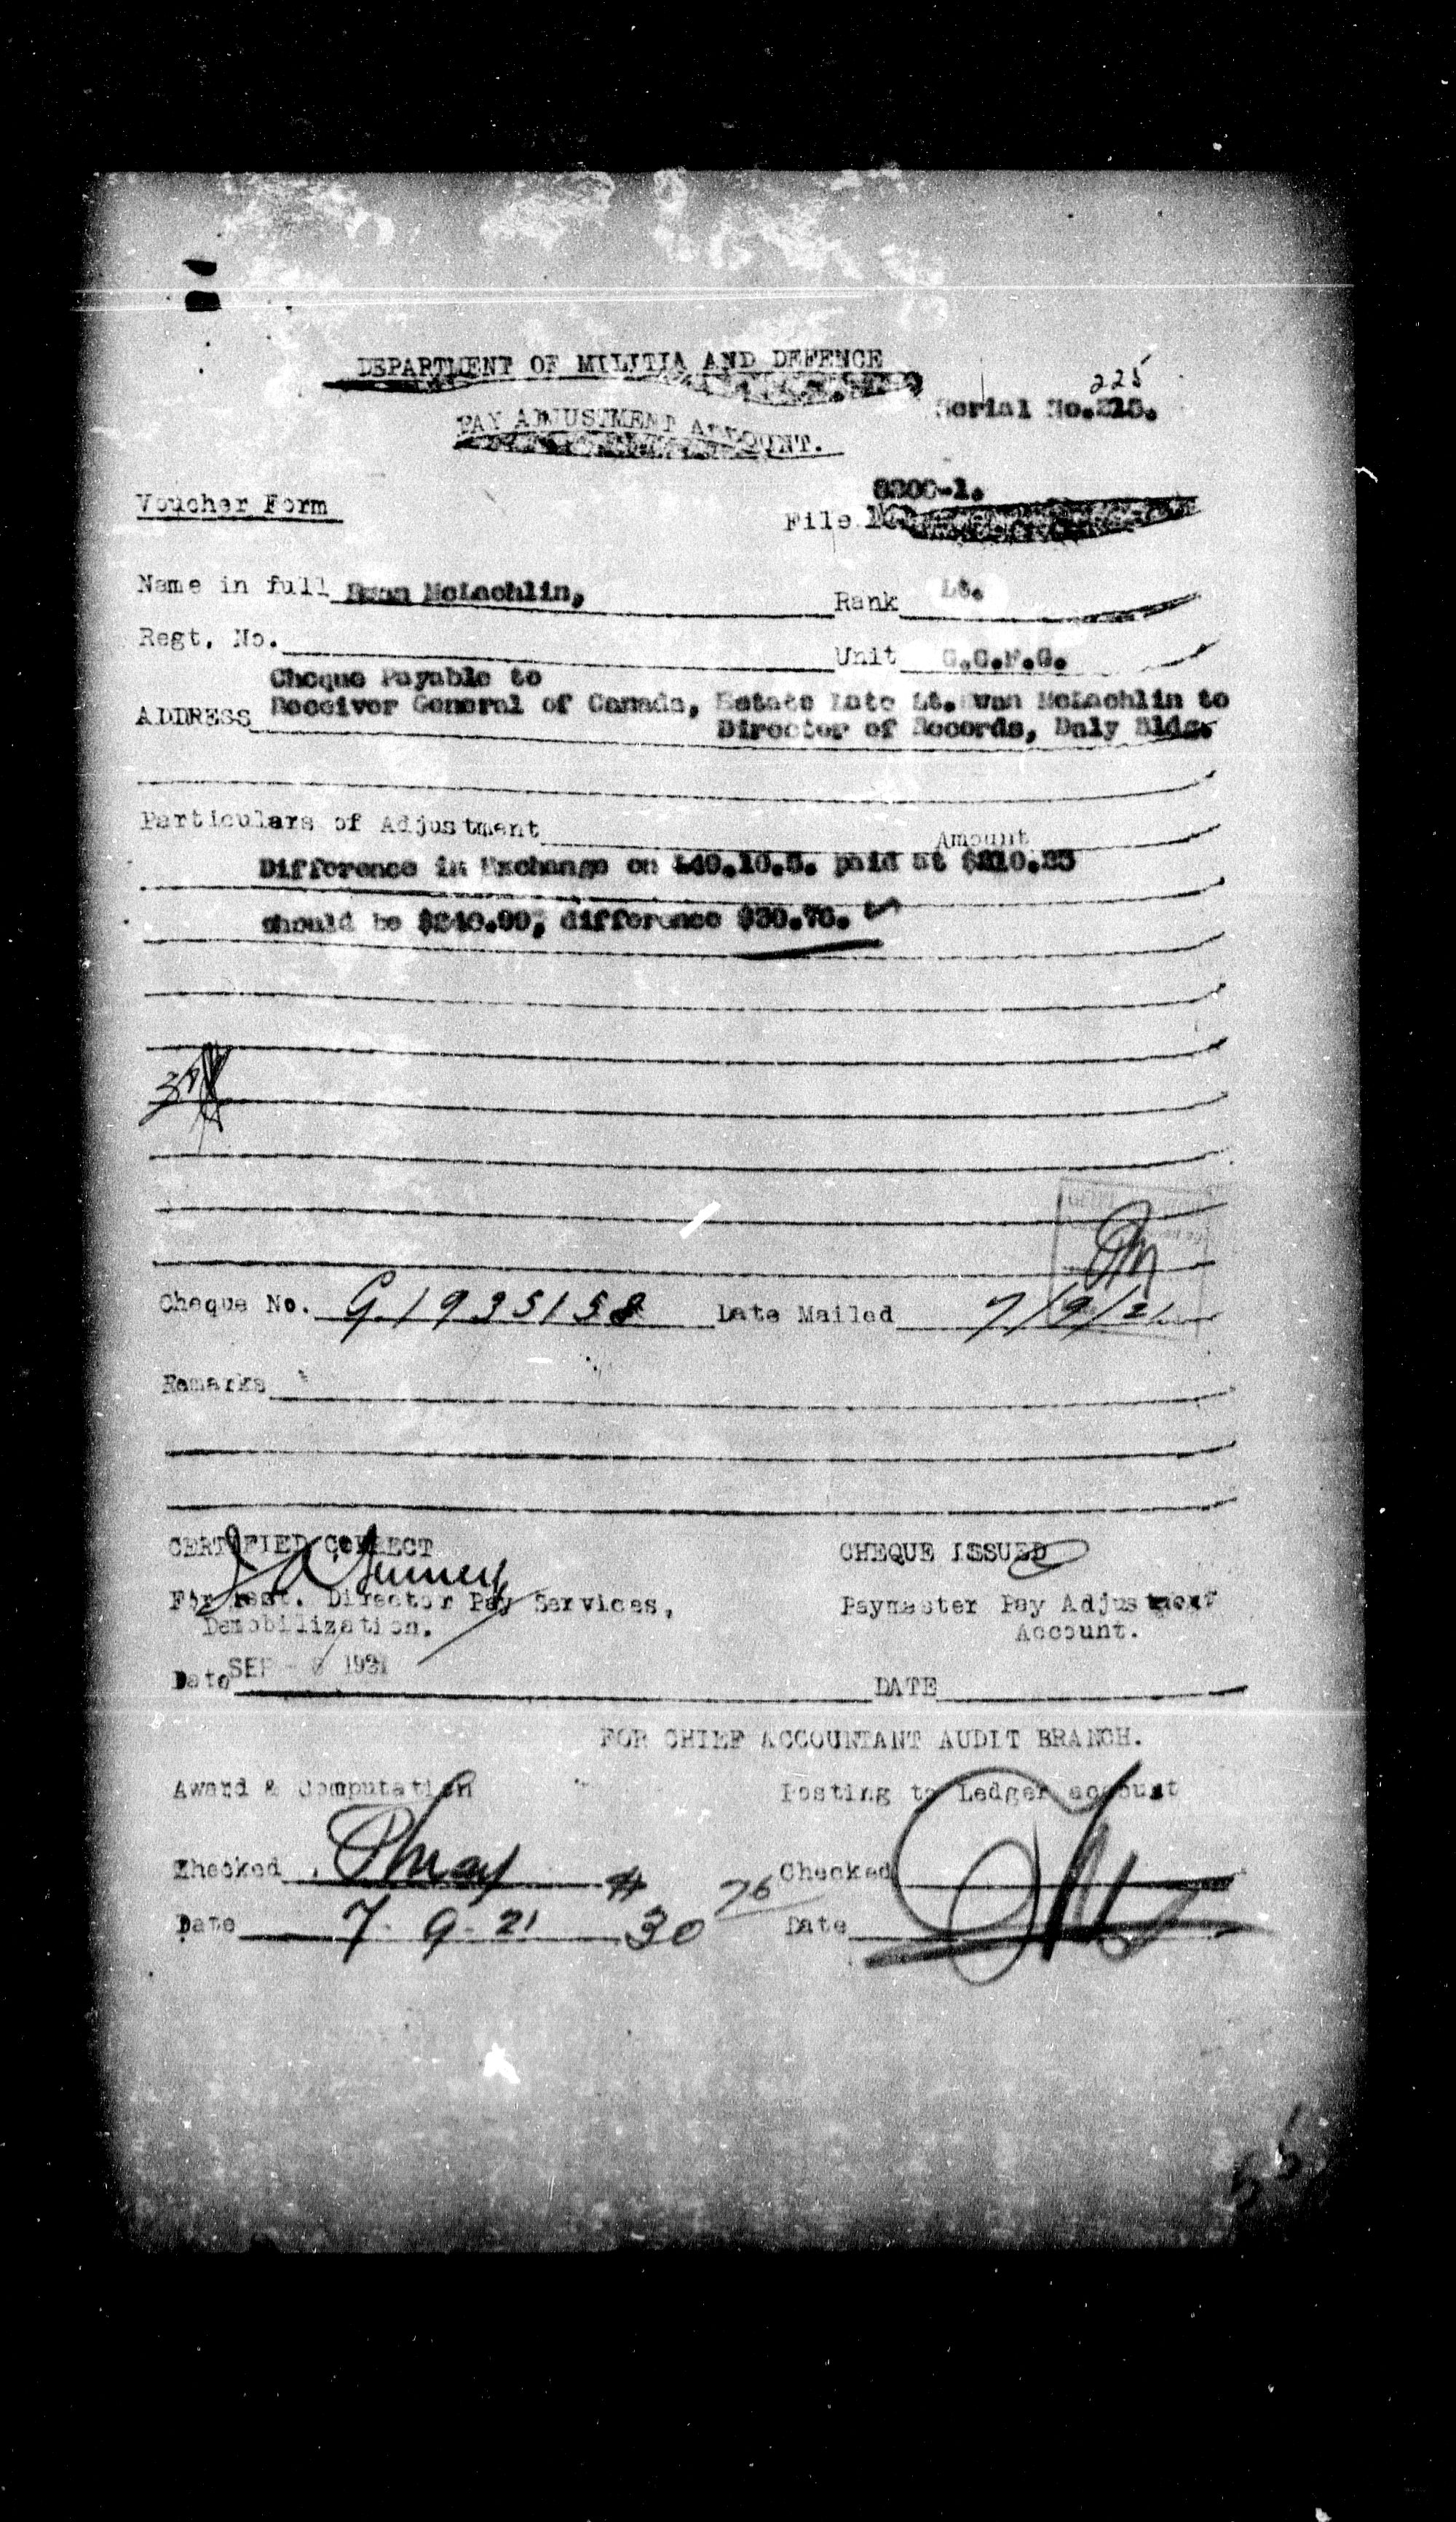 DEPARTMENT OF MILITIA AND DEFENCE
225
Serial No.215.
PAY ADJUSTMENT ACCOUNT.
8200-1.
Voucher Form
File No
Name in full Ewan McLachlin, Rank Lt.
Regt. No. Unit
Cheque Payable to
ADDRESS Receiver General of Canada, Estate Late Lt. Ewan McLachlin to
Director of Records, Daly Bldg.
Particulars of Adjustment Amount
Difference in Exchange on paid at
should be $240.99, difference $30.76.
Cheque No. G.1935158 Date Mailed 7/9/21
Remarks
CERTIFIED CORRECT CHEQUE ISSUED
For Asst. Director Pay Services, Paymaster Pay Adjustment
Demobilization. Account.
Date SEP - 1921 DATE
FOR CHIEF ACCOUNTANT AUDIT BRANCH.
Award & Computation Posting to Ledger account
Checked Checked
Date 7-9-21 $30 76 Date